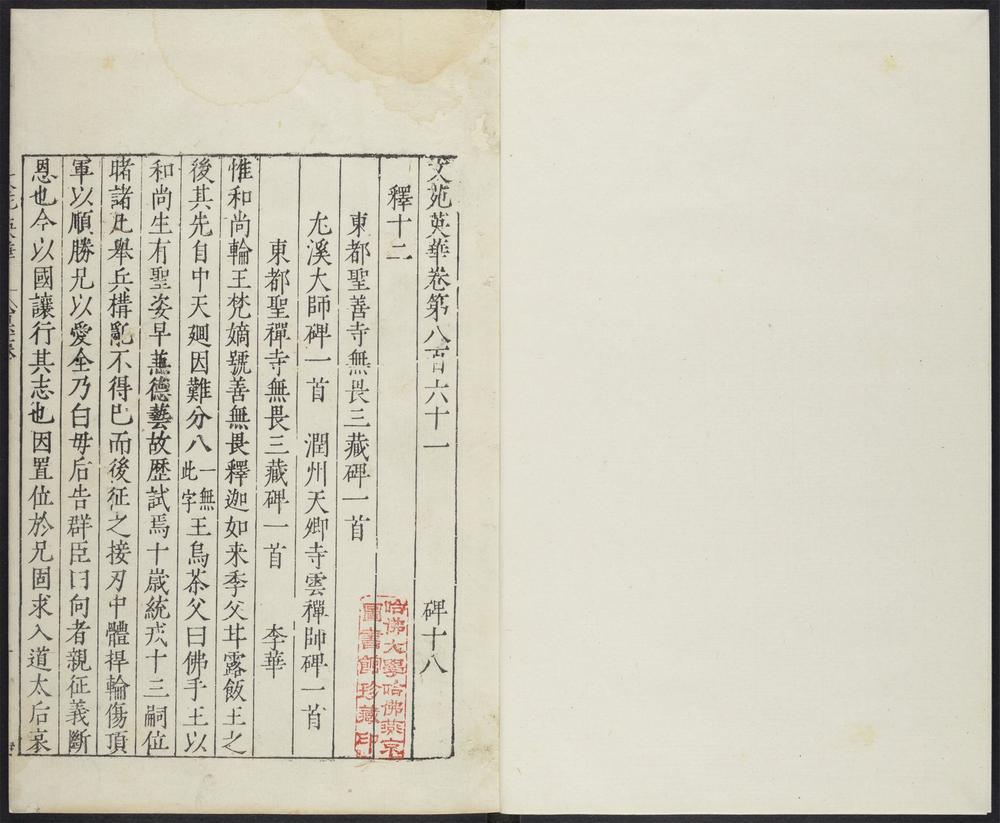 文苑英華卷第八百六十一　碑十八
釋十二
東都聖善寺無畏三藏碑一首
尢溪大師碑一首　潤州天卿寺雲禪師碑一首
東都聖禪寺無畏三藏碑一首　李華
惟和尚輪王梵嫡號善無畏釋迦如来季父甘露飯王之
後其先自中天廻因難分八一無此字王烏茶父曰佛手王以
和尚生有聖姿早蕪德藝故歷試焉十歲統戎十三嗣位
睹諸兄舉兵構亂不得已而後征之接刃中體捍輪傷頂
軍以順勝兄以愛全乃白母后告群臣曰向者親征義斷
恩也今以國讓行其志也因置位於兄固求入道太后哀
哈佛大學哈佛燕京
圖書館珍藏印